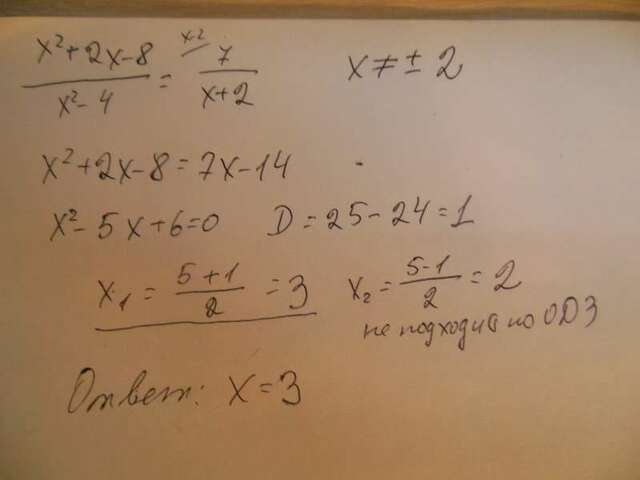 x²+2x-8 / x²-4 = x-2 / 7 / x+2    x ≠ ± 2
x²+2x-8=7x-14
x²-5x+6=0    D=25-24=1
x₁ = 5+1 / 2 = 3    x₂ = 5-1 / 2 = 2
не подходит по ОДЗ
Ответ: x=3